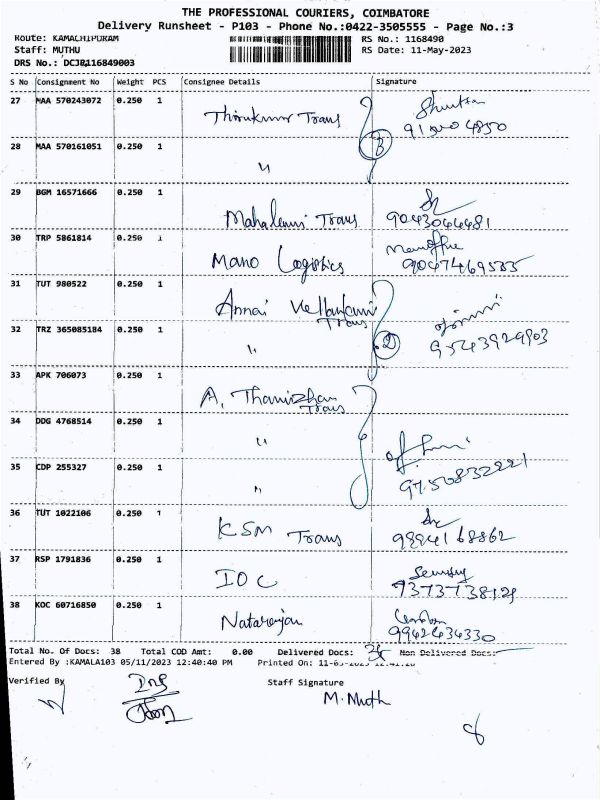 THE PROFESSIONAL COURIERS, COIMBATORE
Delivery Runsheet - P103 - Phone No.:0422-3505555 - Page No.:3
Route: KAMACHIPURAM RS No.: 1168490
Staff: MUTHU RS Date: 11-May-2023
DRS No.:
S No Consignment No Weight PCS Consignee Details Signature
27 MAA 570243072 0.250 1
Thirukumar Trans
28 MAA 570161051 0.250 1
"
29 BGM 16571666 0.250 1
Mahalaxmi Trans 9043044481
30 TRP 5861814 0.250 1
Mano Logistics
31 TUT 980522 0.250 1
Annai Trans
32 TRZ 365085184 0.250 1
" 2 9543929903
33 APK 706073 0.250 1
A. Thamizhan Trans
34 DDG 4768514 0.250 1
"
35 CDP 255327 0.250 1
" 9750832221
36 TUT 1022106 0.250 1
KSM Trans 9894168862
37 RSP 1791836 0.250 1
IOC
38 KOC 60716850 0.250 1
Natarajan 9942434330
Total No. Of Docs: 38 Total COD Amt: 0.00 Delivered Docs: Non Delivered Docs:
Entered By :KAMALA103 05/11/2023 12:40:40 PM Printed On:
Verified By Staff Signature
M. Muth
8